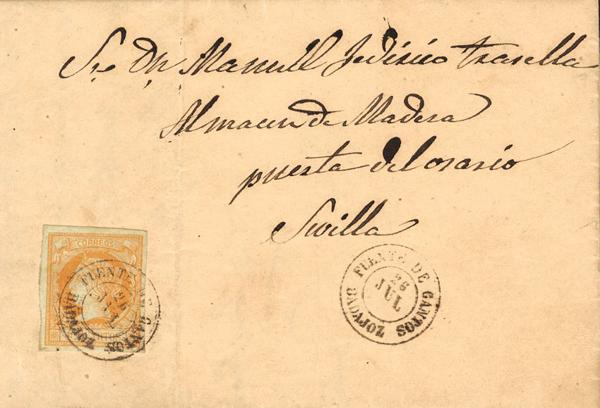 Sr. Dn. Manuel Federico Trasella
Almacen de Madera
puerta del osario
Sevilla
CORREOS
FUENTE DE CANTOS
BADAJOZ
FUENTE DE CANTOS
26
JUL
BADAJOZ